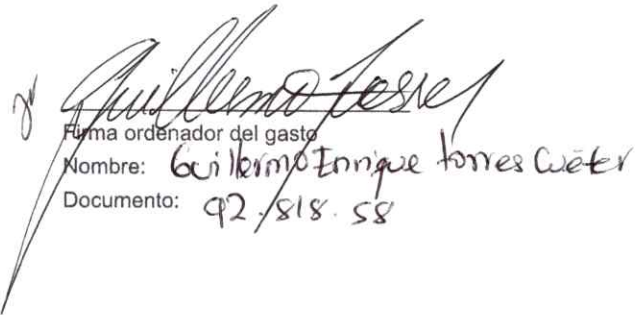 Guillermo Torres
Firma ordenador del gasto
Nombre: Guillermo Enrique torres Cuéter
Documento: 92.818.58